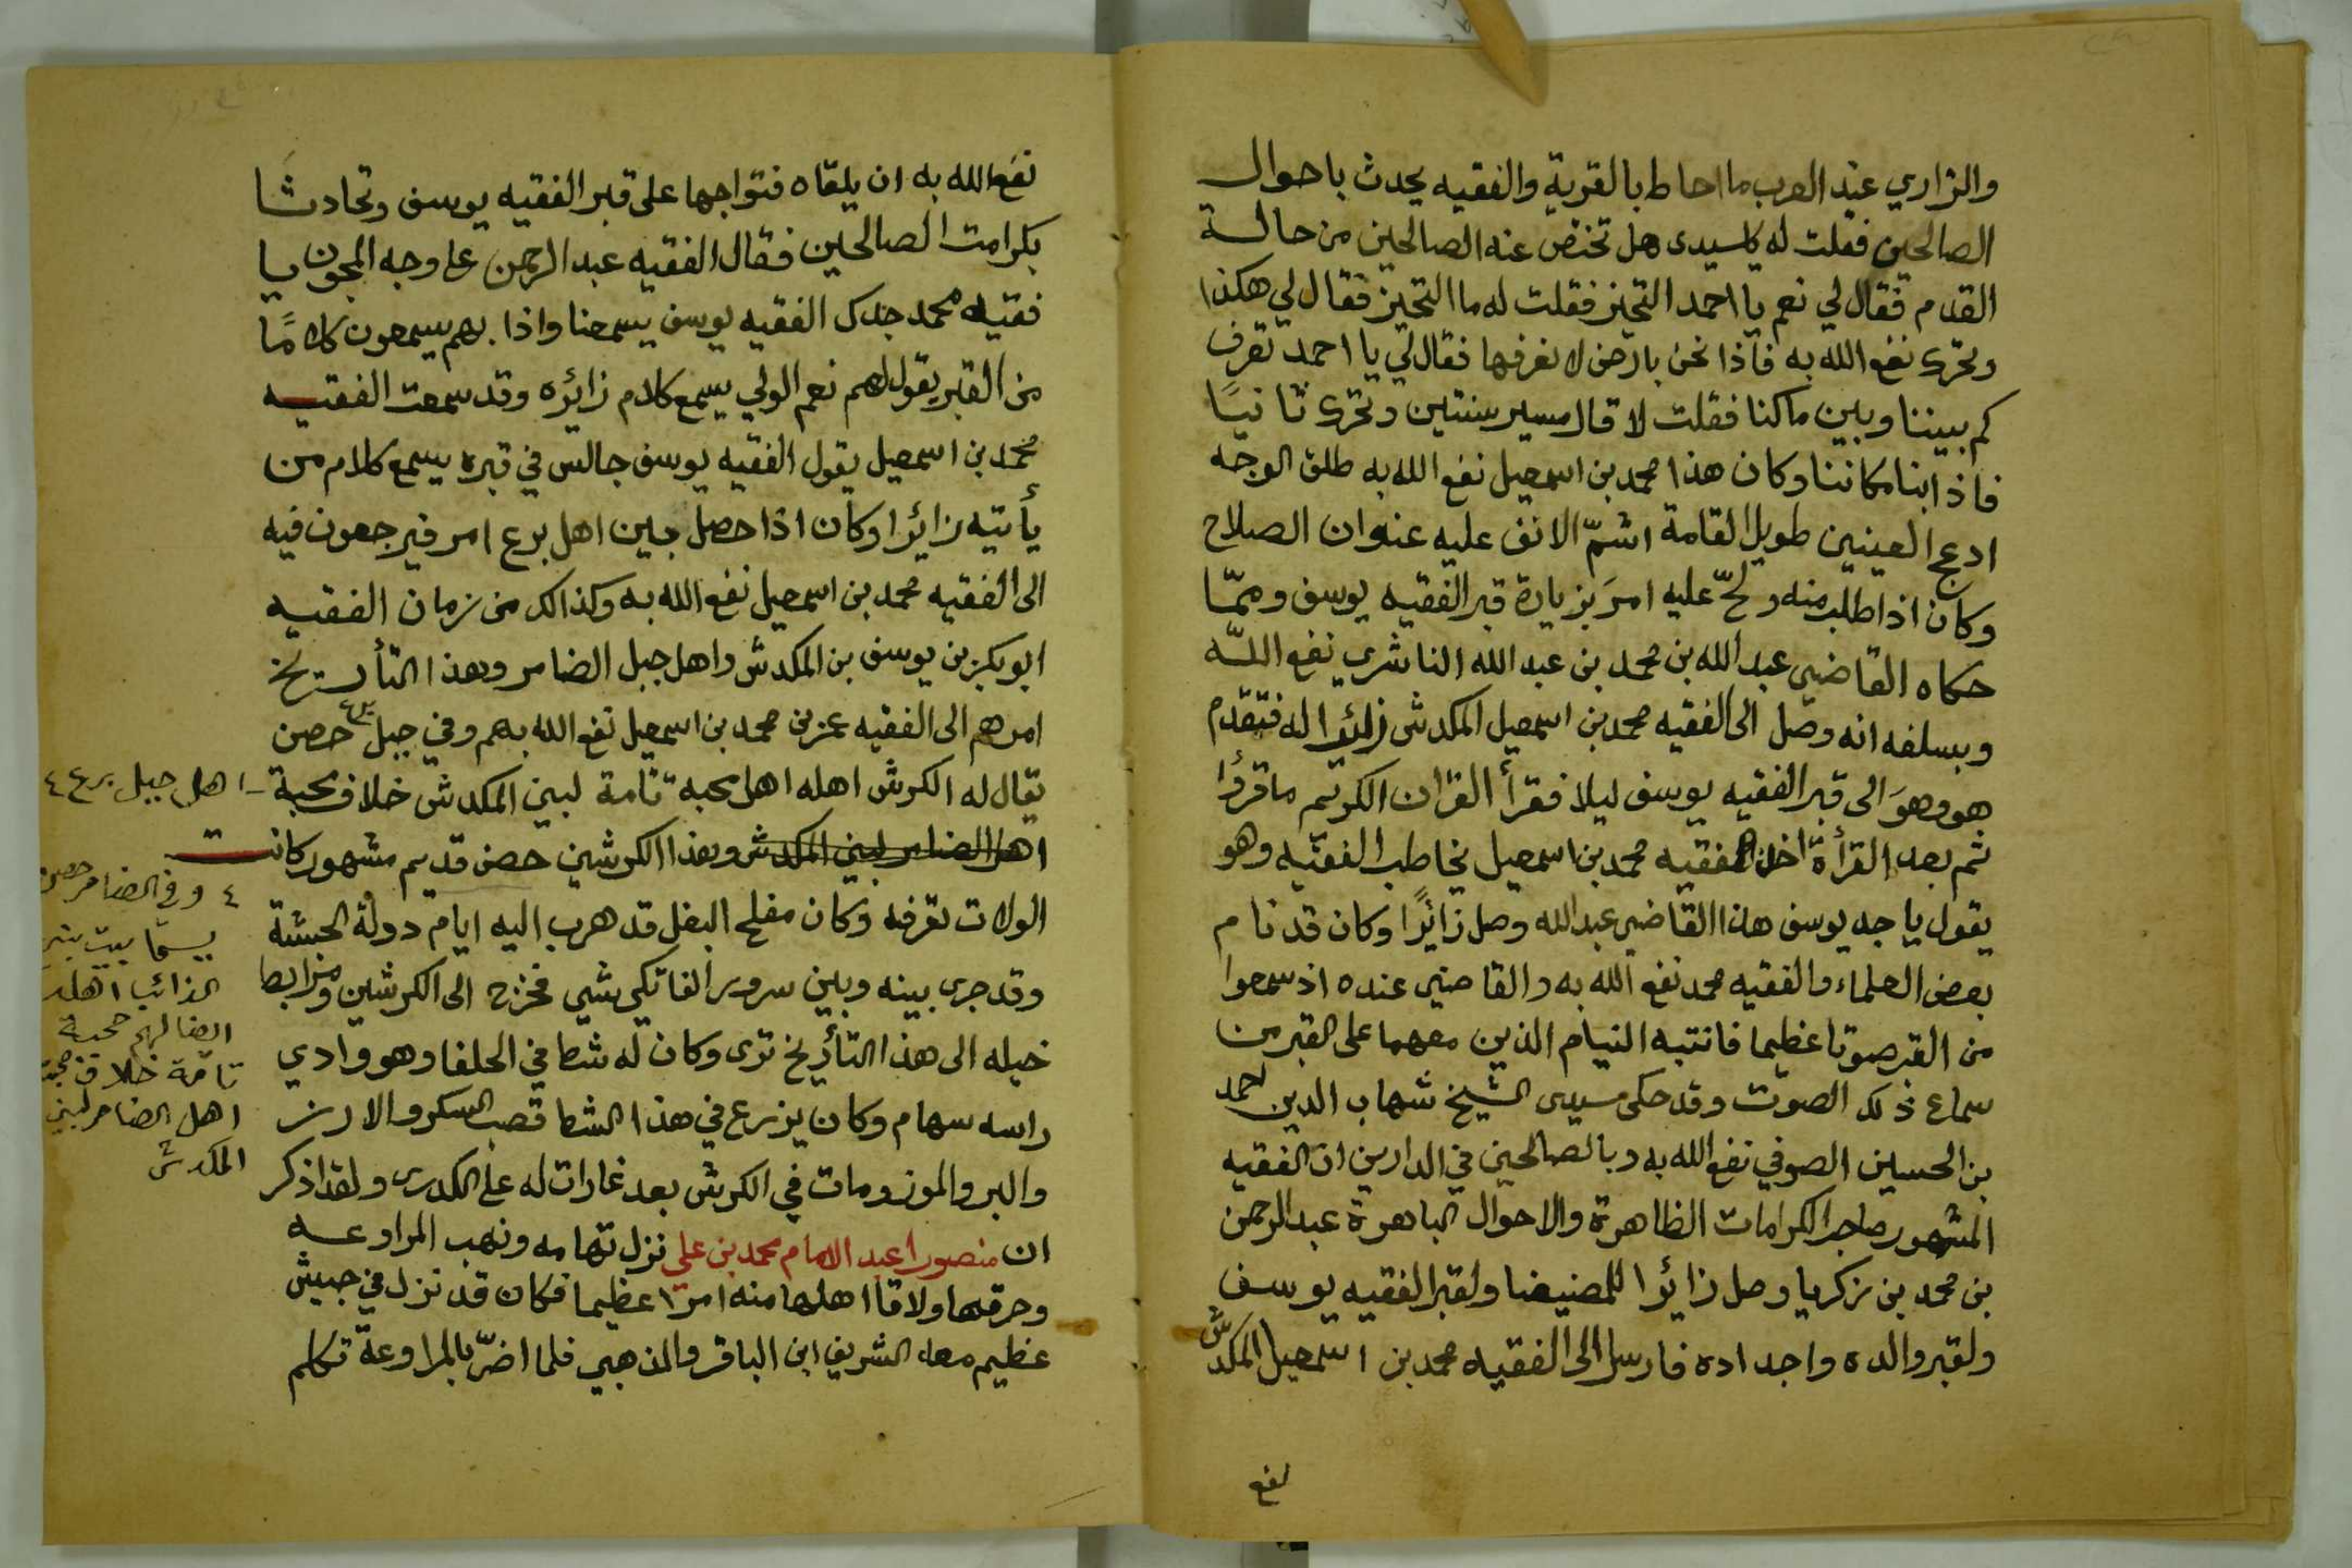 والزاري عند العرب ما احاط بالقرية والفقيه يحدث باحوال
الصالحين فقلت له يا سيدي هل تختص عنه الصالحين من حالة
القدم فقال لي نعم يا احمد التحيز فقلت له ما التحيز فقال لي هكذا
وتحرك نفع الله به فاذا نحن بارض لا نعرفها فقال لي يا احمد تعرف
كم بيننا وبين ما كنا فقلت لا قال مسير سنتين وتحرك ثانيًا
فاذا بنا مكاننا وكان هذا محمد بن اسمعيل نفع الله به طلق الوجه
ادعج العينين طويل القامة اشمّ الانف عليه عنوان الصلاح
وكان اذا طلب منه ولحّ عليه امرَ بزيارة قبر الفقيه يوسف وممّا
حكاه القاضي عبد الله بن محمد بن عبد الله الناشري نفع اللّه
وبسلفه انه وصل الى الفقيه محمد بن اسمعيل المكدش زائرا له فتقدم
هو وهوَ الى قبر الفقيه يوسف ليلا فقرأ القران الكريم ما قرؤا
ثم بعد القرأة اخذ الفقيه محمد بن اسمعيل يخاطب الفقيه وهو
يقول يا جد يوسف هذا القاضي عبد الله وصل زائرًا وكان قد نام
بعض العلماء والفقيه محمد نفع الله به والقاضي عنده اذ سمعوا
من القبر صوتا عظيما فانتبه النيام الذين معهما على القبر من
سماع ذلك الصوت وقد حكى سيدى الشيخ شهاب الدين احمد
بن الحسين الصوفي نفع الله به وبالصالحين في الدارين ان الفقيه
المشهور صاحب الكرامات الظاهرة والاحوال الباهرة عبد الرحمن
بن محمد بن زكريا وصل زائرا للمضيضا ولقبر الفقيه يوسف
ولقبر والده واجداده فارسل الى الفقيه محمد بن اسمعيل المكدش
نفع
نفع الله به ان يلقاه فتواجها على قبر الفقيه يوسف وتحادثا
بكرامت الصالحين فقال الفقيه عبد الرحمن على وجه المجون يا
فقيه محمد جدك الفقيه يوسف يسمعنا واذا بهم يسمعون كلامًا
من القبر يقول لهم نعم الولي يسمع كلام زائره وقد سمعت الفقيه
محمد بن اسمعيل يقول الفقيه يوسف جالس في قبره يسمع كلام من
يأتيه زائرا وكان اذا حصل بين اهل برع امر فيرجعون فيه
الى الفقيه محمد بن اسمعيل نفع الله به وكذالك من زمان الفقيه
ابو بكر بن يوسف بن المكدش واهل جبل الضامر وهذا التأريخ
امرهم الى الفقيه عمر بن محمد بن اسمعيل نفع الله بهم وفي جبل برع حصن
يقال له الكرش اهله اهل محبه تامة لبني المكدش خلاف محبة
اهل الضامر لبني المكدش وهذا الكرشين حصن قديم مشهور كانت
الولات تعرفه وكان مفلح البغل قد هرب اليه ايام دولة الحبشة
وقد جرى بينه وبين سرور الفاتكي شي فخرج الى الكرشين ومرابط
خيله الى هذا التأريخ ترى وكان له شط في الحلفا وهو وادي
راسه سهام وكان يزرع في هذا الشط قصب السكر والارز
والبر والموز ومات في الكرش بعد غارات له على الكدرى ولقد اذكر
ان منصورا عبد الامام محمد بن علي نزل تهامه ونهب المراوعه
وحرقها ولاقا اهلها منه امرًا عظيما فكان قد نزل في جيش
عظيم معه الشريف ابن الباقر والمذهبي فلما اضرّ بالمراوعة تكلم
اهل جبل برع ٤
٤ وفي الضامر حصن
يسمّا بيت بني
اهله
محبة
تامة خلاف محبة
اهل الضامر لبني
المكدش